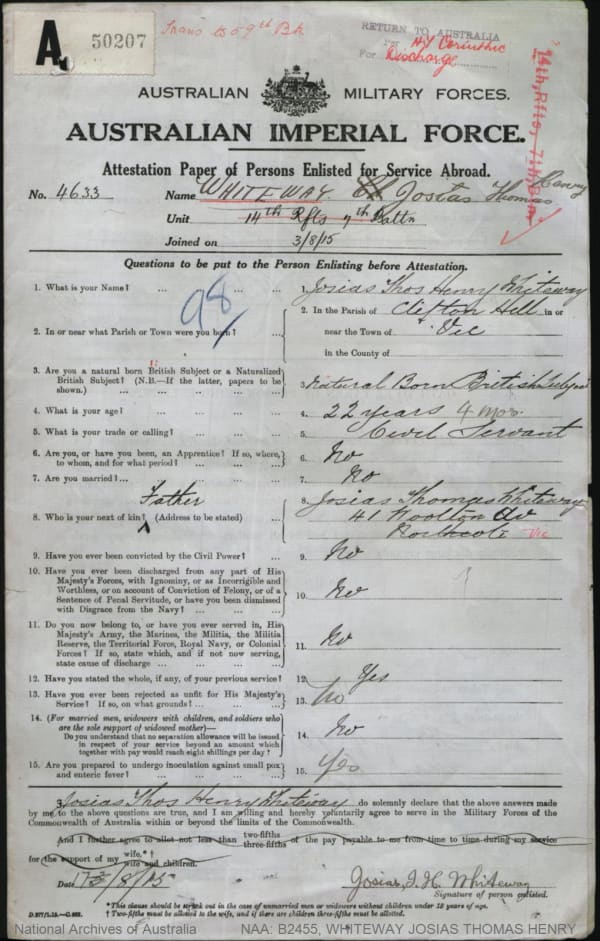 A. 50207
Trans to 59th Bn
RETURN TO AUSTRALIA
Per HT Corinthic
For Discharge
AUSTRALIAN MILITARY FORCES.
AUSTRALIAN IMPERIAL FORCE.
Attestation Paper of Persons Enlisted for Service Abroad.
No. 4633 Name WHITEWAY. Josias Thomas Henry
Unit 14th Rfts 7th Battn
Joined on 3/8/15
14th. Rfts, 7th Bn.
Questions to be put to the Person Enlisting before Attestation.
1. What is your Name? ... ... ... 1. Josias Thos Henry Whiteway
98
2. In or near what Parish or Town were you born? ... 2. In the Parish of Clifton Hill in or
near the Town of Vic
in the County of
3. Are you a natural born British Subject or a Naturalized
British Subject? (N.B.—If the latter, papers to be
shown.) ... ... ... ... 3. Natural Born British Subject
4. What is your age? ... ... ... 4. 22 years 4 mos.
5. What is your trade or calling? ... ... ... 5. Civil Servant
6. Are you, or have you been, an Apprentice? If so, where,
to whom, and for what period? ... ... ... 6. No
7. Are you married?... ... ... ... 7. No
Father
8. Who is your next of kin? (Address to be stated) ... 8. Josias Thomas Whiteway
41 Woolton Av
Northcote Vic
9. Have you ever been convicted by the Civil Power? ... 9. No
10. Have you ever been discharged from any part of His
Majesty's Forces, with Ignominy, or as Incorrigible and
Worthless, or on account of Conviction of Felony, or of a
Sentence of Penal Servitude, or have you been dismissed
with Disgrace from the Navy? ... ... ... 10. No
11. Do you now belong to, or have you ever served in, His
Majesty's Army, the Marines, the Militia, the Militia
Reserve, the Territorial Force, Royal Navy, or Colonial
Forces? If so, state which, and if not now serving,
state cause of discharge ... ... ... 11. No
12. Have you stated the whole, if any, of your previous service? 12. Yes
13. Have you ever been rejected as unfit for His Majesty's
Service? If so, on what grounds? ... ... ... 13. No
14. (For married men, widowers with children, and soldiers who
are the sole support of widowed mother)—
Do you understand that no separation allowance will be issued
in respect of your service beyond an amount which
together with pay would reach eight shillings per day? 14. No
15. Are you prepared to undergo inoculation against small pox
and enteric fever? ... ... ... ... 15. Yes
Josias Thos Henry Whiteway do solemnly declare that the above answers made
by me to the above questions are true, and I am willing and hereby voluntarily agree to serve in the Military Forces of the
Commonwealth of Australia within or beyond the limits of the Commonwealth.
And I further agree to allot not less than two-fifths three-fifths of the pay payable to me from time to time during my service
for the support of my wife.*† wife and children.
Date /8/15 Josias T. H. Whiteway
Signature of person enlisted.
*This clause should be struck out in the case of unmarried men or widowers without children under 18 years of age.
†Two-fifths must be allotted to the wife, and if there are children three-fifths must be allotted.
National Archives of Australia NAA: B2455, WHITEWAY JOSIAS THOMAS HENRY